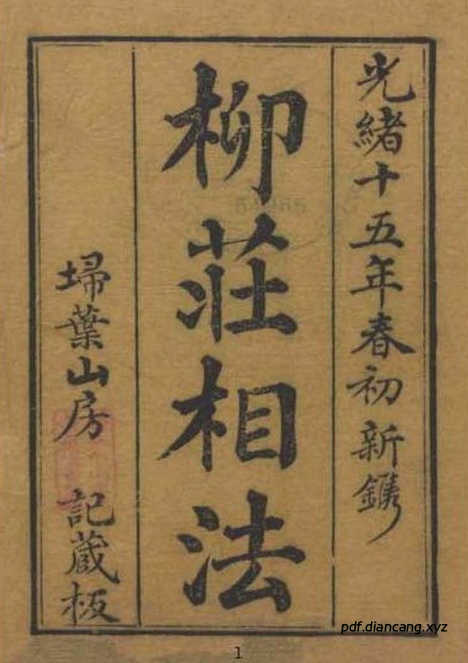 光緒十五年春初新鐫
柳莊相法
埽葉山房 記蔵板
54265
pdf.diancang.xyz
1